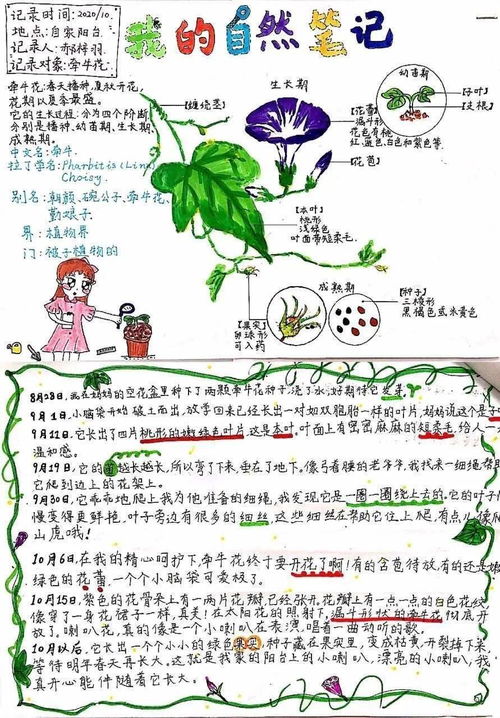 我的自然笔记
记录时间:2020/10.
地点:自家阳台.
记录人:郝梓羽.
记录对象:牵牛花.
牵牛花:春天播种,夏秋开花,
花期以夏季最盛。
它的生长过程:分为四个阶断
分别是播种、幼苗期、生长期、
成熟期。
中文名:牵牛
拉丁学名:Pharbitis(Linn)
Choisy.
别名:朝颜、碗公子、牵牛花、
勤娘子.
界:植物界
门:被子植物的
【缠绕茎】
生长期
【花蕾】
漏斗形
花色有桃
红、蓝色、白色和紫色等.
【花苞】
幼苗期
【子叶】
【支根】
【本叶】
桃形
浅绿色
叶面带短柔毛.
成熟期
【果实】
卵球形
可入药
【种子】
三棱形
黑褐色或米黄色
8月28日,我在妈妈的空花盆里种下了两颗牵牛花种子,浇了水,好期待它发芽。
9月1日,小脑袋开始破土而出,放学回来已经长出一对如双胞胎一样的叶片,妈妈说这个是子
9月12日,它长出了四片桃形的嫩绿色叶片这是本叶。叶面上有密密麻麻的短柔毛,给人一
温和感。
9月19日,它的茎越长越长,所以弯了下来,垂在了地下。像弓着腰的老爷爷,我找来一细绳帮
它爬到边上的花架上。
9月30日,它乖乖地爬上我为他准备的细绳,我发现它是一圈一圈绕上去的。它的叶子
慢变得更鲜艳,叶子旁边有很多的细丝,这些细丝在帮助它往上爬,有点儿像爬
山虎哦!
10月6日,在我的精心呵护下,牵牛花终于要开花了啊!有的含苞待放,有的还是嫩
绿色的花蕾,一个个小脑袋可爱极了。
10月15日,紫色的花骨朵上有一两片花瓣已经张开,花瓣上有一点一点的白色花纹,
像穿了一身花裙子一样,真美!在太阳花的照射下,漏斗形状的牵牛花彻底开
放了。喇叭花,真的像是一个小喇叭在表演,唱着一曲动听的歌。
10月以后,它长出一个个小小的绿色果实,种子藏在果实里,变成枯黄,开裂掉下来,
等待明年春天再长大。这就是我家的阳台上的小喇叭,漂亮的小喇叭,我
真开心能伴随着它长大。